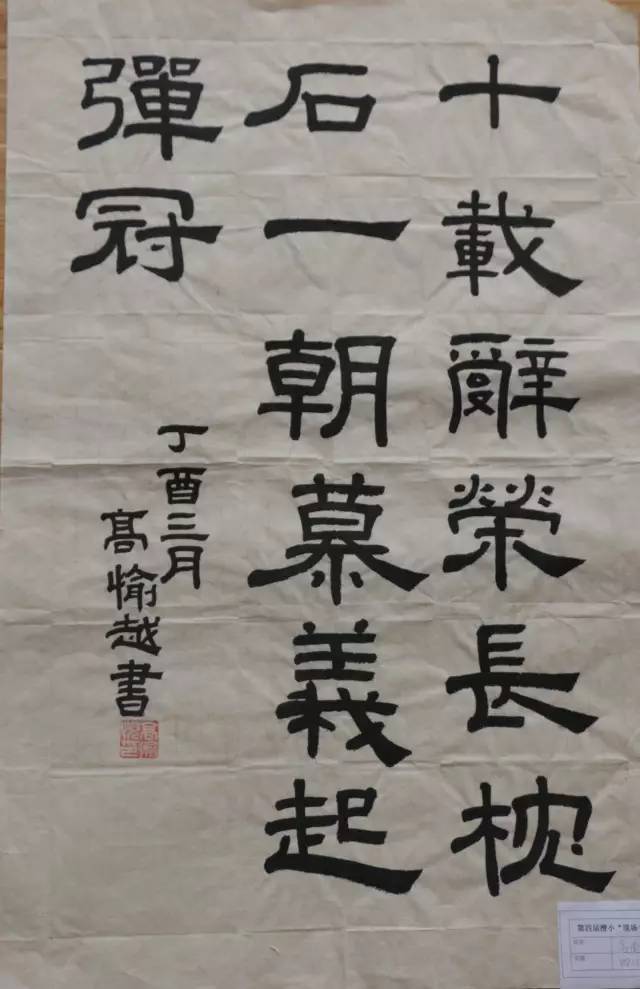 十載辭榮長枕
石一朝慕義起
彈冠
丁酉三月
高愉越書
第四屆